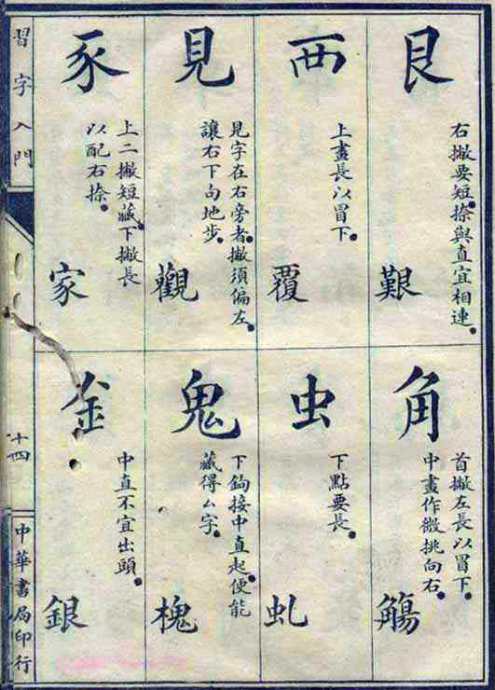 艮
右撇要短捺與直宜相連
艱
襾
上畫長以冒下
覆
見
見字在右旁者撇須偏左
讓右下句地步
觀
豕
上二撇短藏下撇長
以配右捺
家
角
首撇左長以冒下
中畫作微挑向右
觴
虫
下點要長
虬
鬼
下鉤接中直起便能
藏得厶字
槐
金
中直不宜出頭
銀
習字入門
十四
中華書局印行